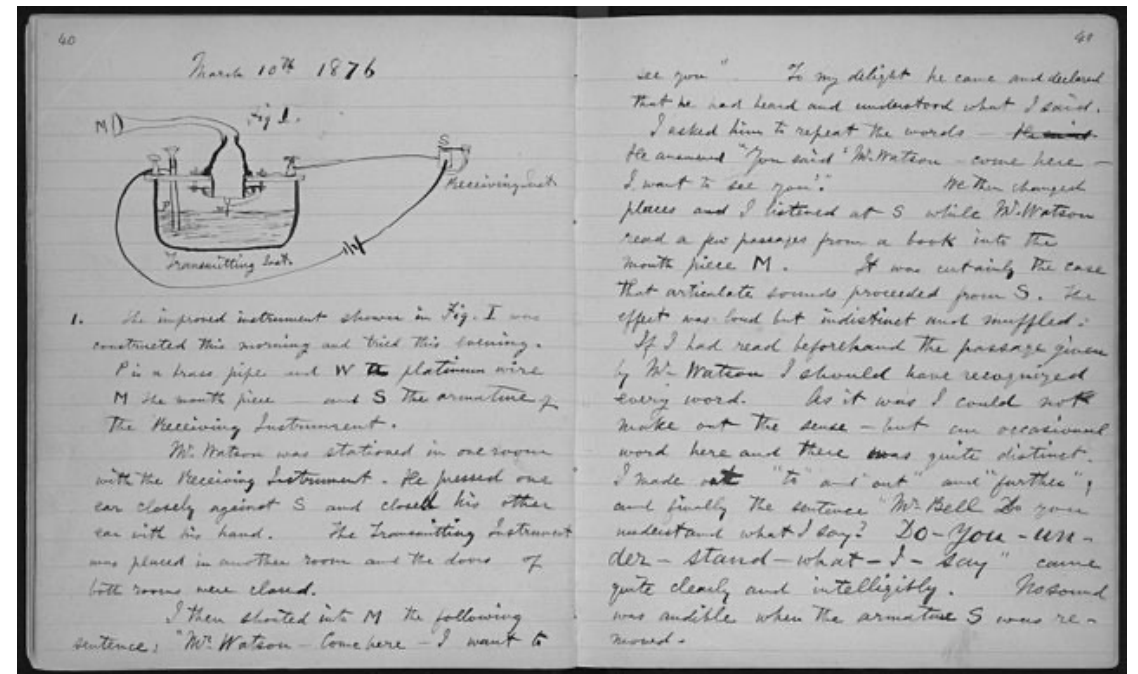 40
March 10th 1876
M
Fig I.
S
Receiving Inst.
P
W
Transmitting Inst.
1. The improved instrument shown in Fig. I was
constructed this morning and tried this evening.
P is a brass pipe and W a platinum wire
M the mouth piece — and S the armature of
the Receiving Instrument.
Mr. Watson was stationed in one room
with the Receiving Instrument. He pressed one
ear closely against S and closed his other
ear with his hand. The Transmitting Instrument
was placed in another room and the doors of
both rooms were closed.
I then shouted into M the following
sentence: "Mr. Watson — Come here — I want to
41
see you". To my delight he came and declared
that he had heard and understood what I said.
I asked him to repeat the words — He said
He answered "You said 'Mr. Watson — come here —
I want to see you'." We then changed
places and I listened at S while Mr. Watson
read a few passages from a book into the
mouth piece M. It was certainly the case
that articulate sounds proceeded from S. The
effect was loud but indistinct and muffled.
If I had read beforehand the passage given
by Mr. Watson I should have recognized
every word. As it was I could not
make out the sense — but an occasional
word here and there was quite distinct.
I made out "to" and "out" and "further";
and finally the sentence "Mr. Bell Do you
understand what I say? Do-you-un-
der-stand-what-I-say" came
quite clearly and intelligibly. No sound
was audible when the armature S was re-
moved.